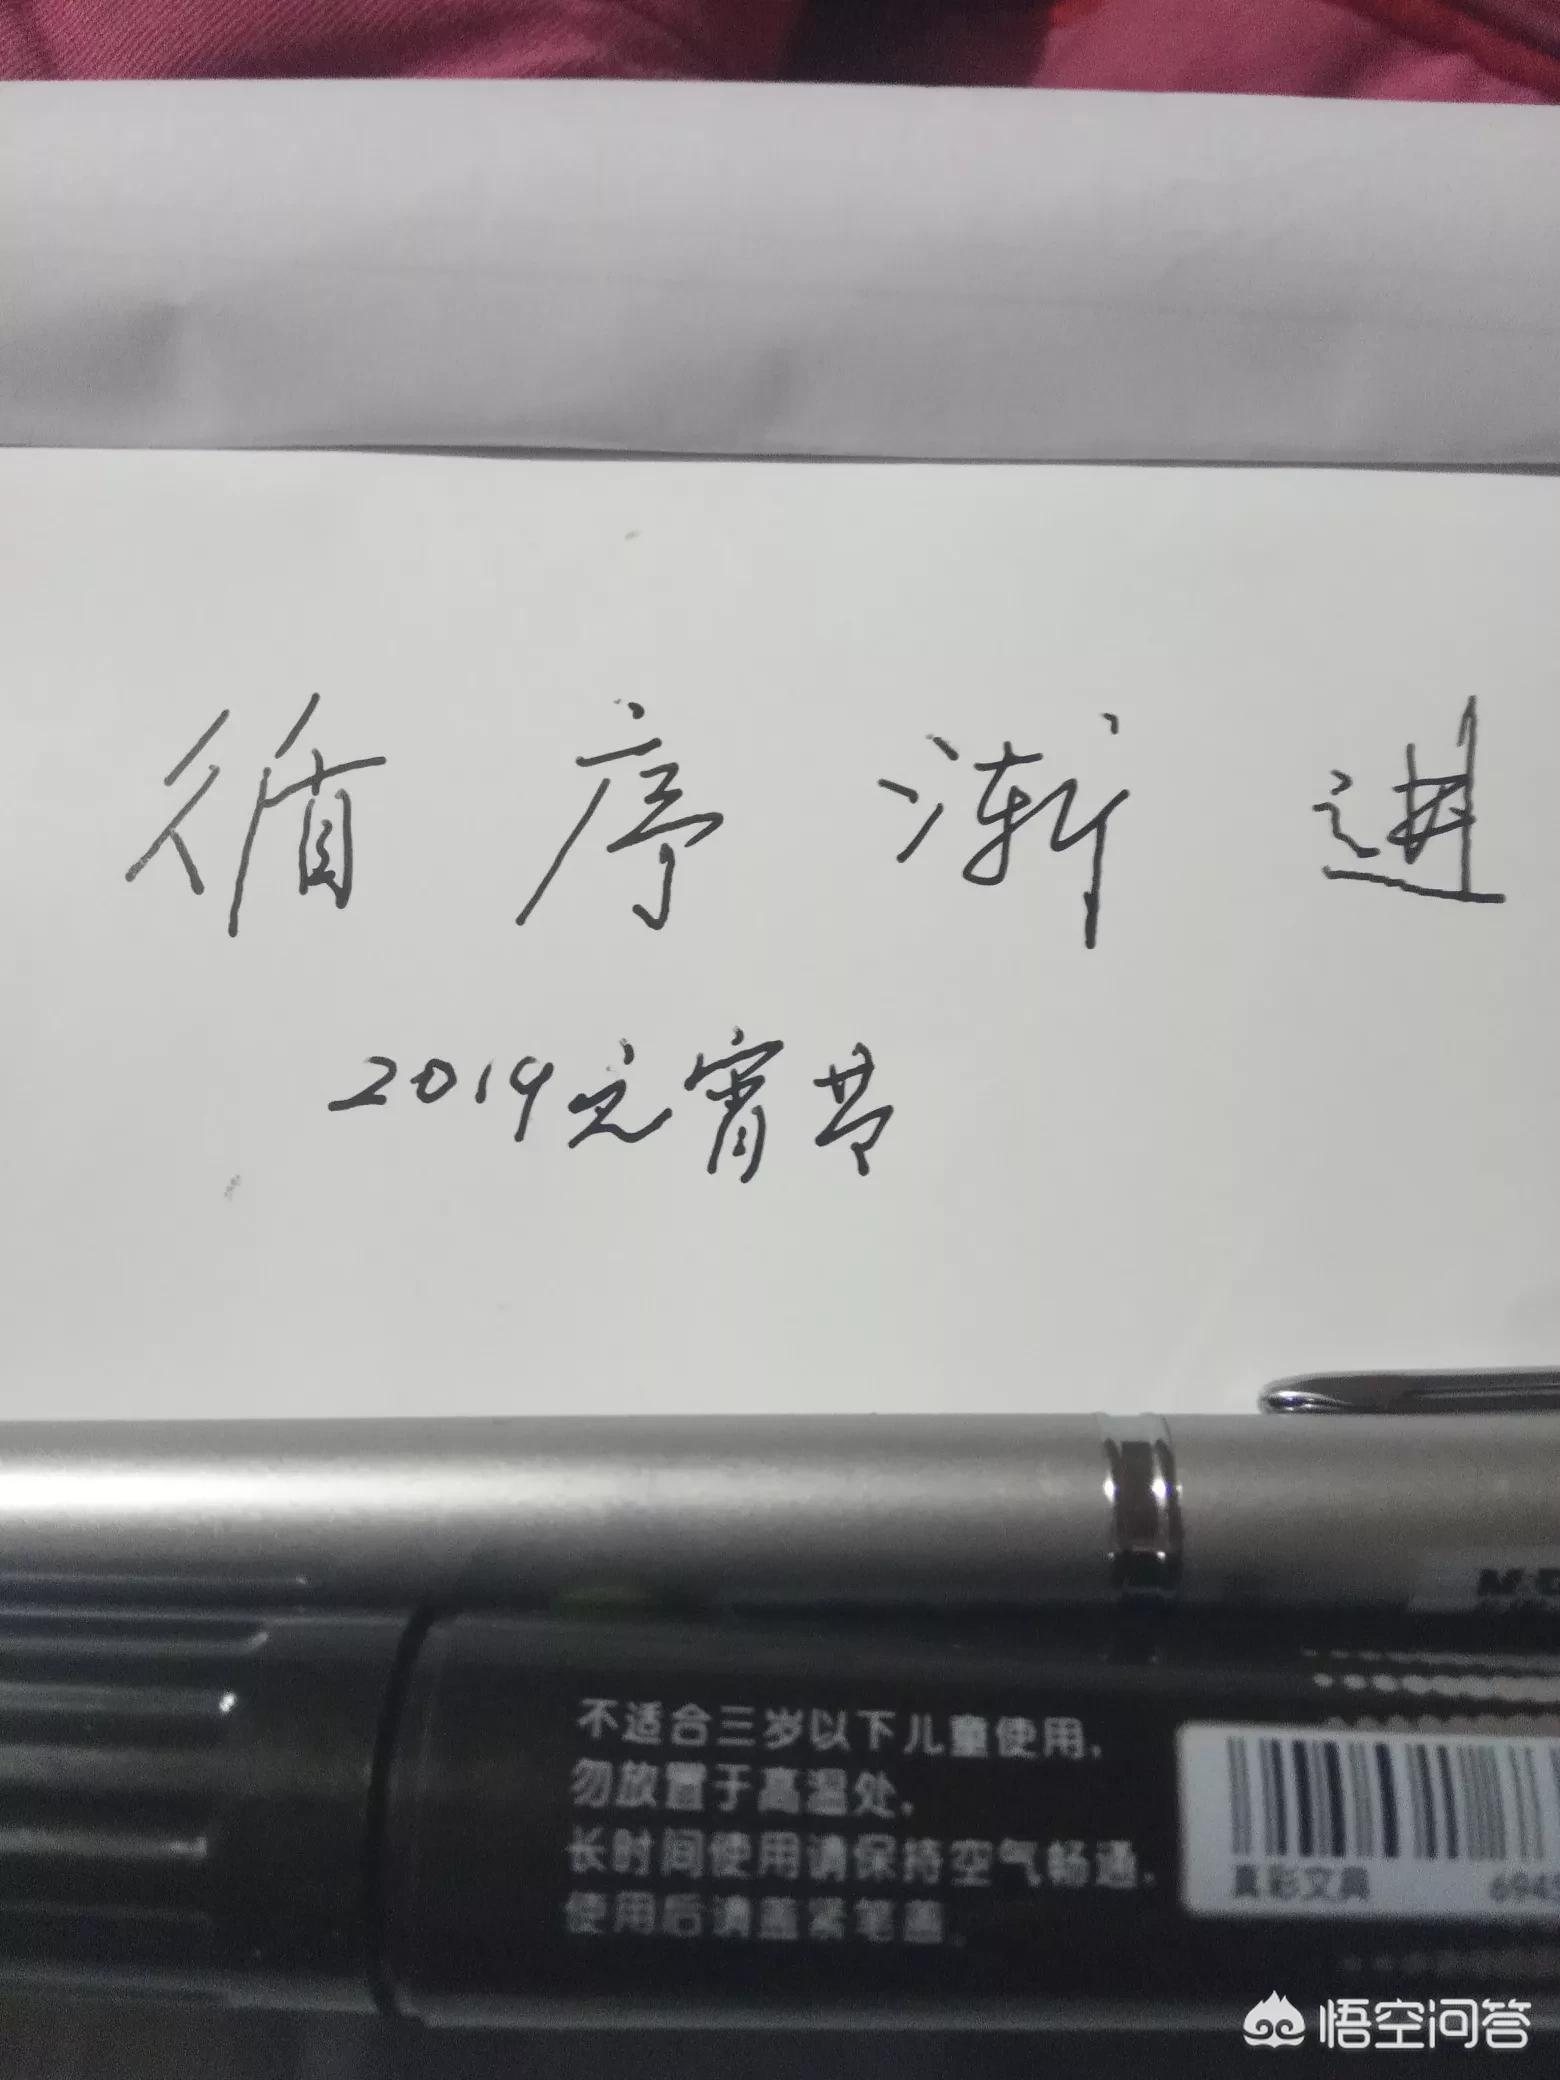 循序渐进
2019元宵节
不适合三岁以下儿童使用,
勿放置于高温处,
长时间使用请保持空气畅通,
使用后请盖紧笔盖。
真彩文具 694
悟空问答